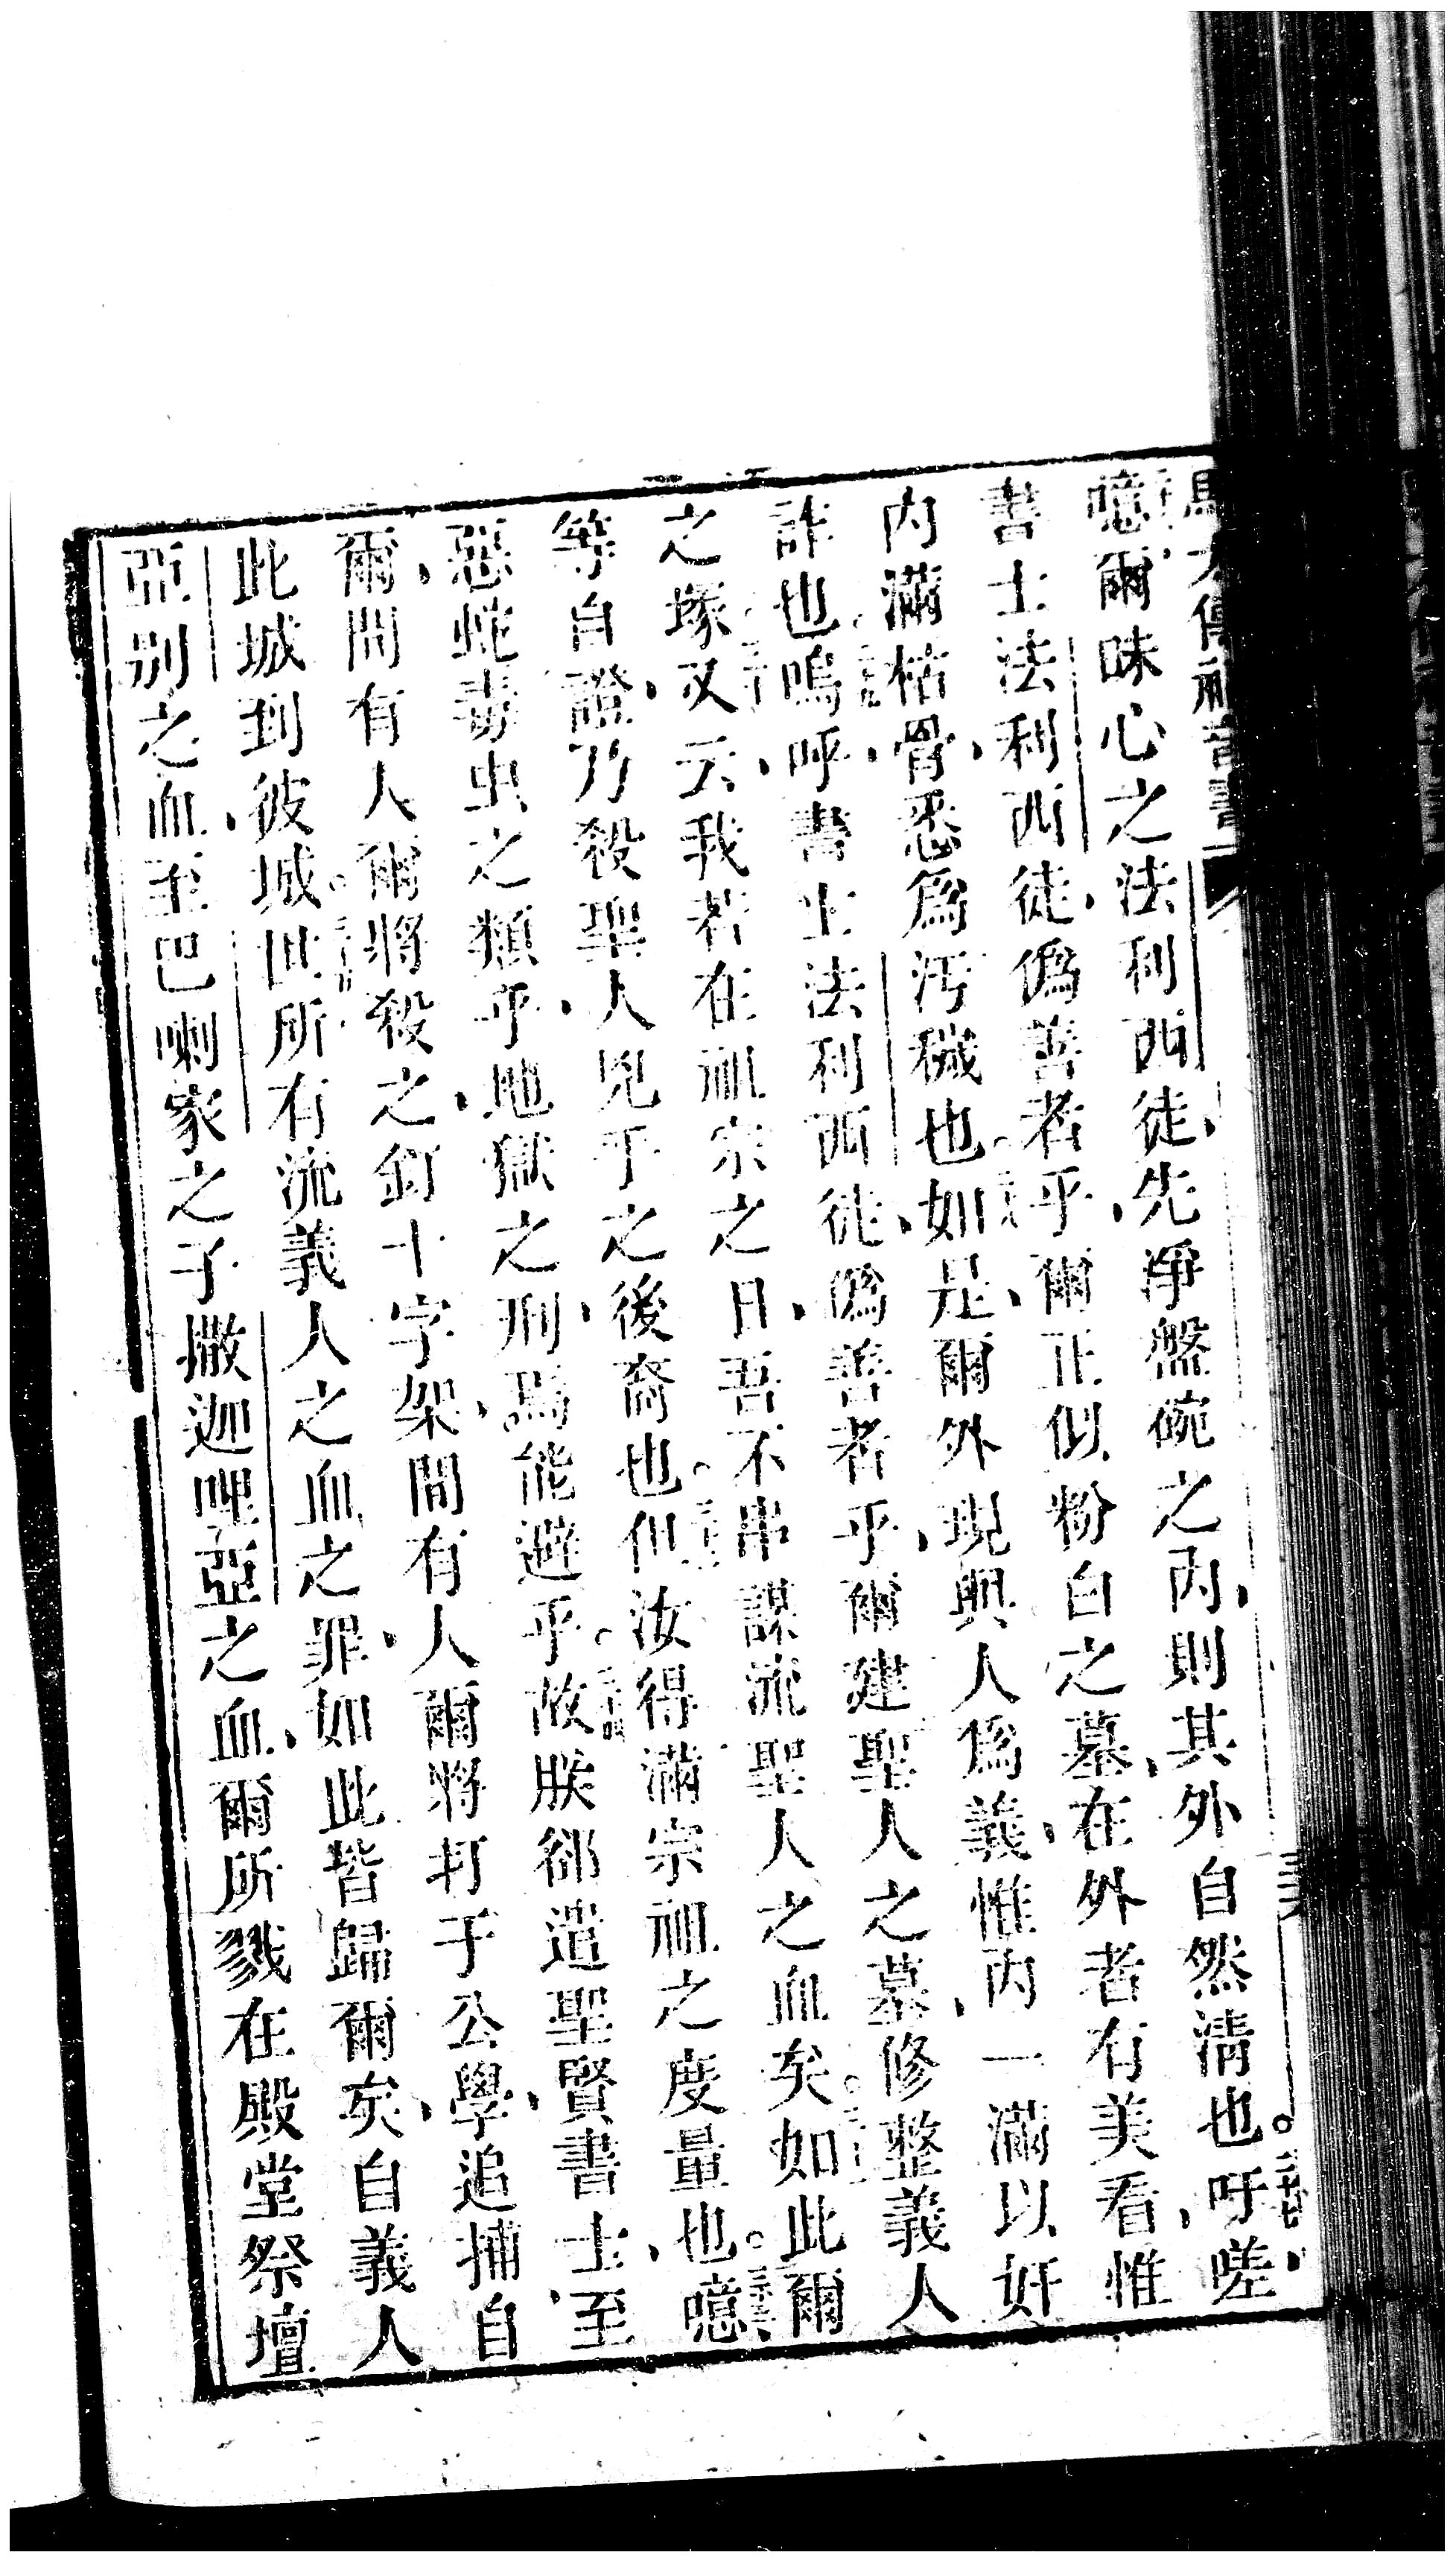 馬太傳福音書
噫爾昧心之法利西徒、先淨盤碗之內、則其外自然清也。吁嗟、
書士法利西徒、僞善者乎、爾正似粉白之墓、在外者有美看、惟
內滿枯骨、悉爲汚穢也。如是、爾外現與人爲義、惟內一滿以奸
詐也。嗚呼、書士法利西徒、僞善者乎、爾建聖人之墓、修整義人
之塚、又云、我若在祖宗之日、吾不串謀流聖人之血矣。如此爾
等自證、乃殺聖人兇手之後裔也。但汝得滿宗祖之度量也。噫、
惡蛇毒虫之類乎、地獄之刑、焉能避乎。故朕郤遣聖賢書士、至
爾、間有人爾將殺之、釘十字架、間有人爾將打于公學、追捕自
此城到彼城。世所有流義人之血之罪、如此皆歸爾矣、自義人
亞別之血、至巴喇家之子撒迦哩亞之血、爾所戮在殿堂祭壇